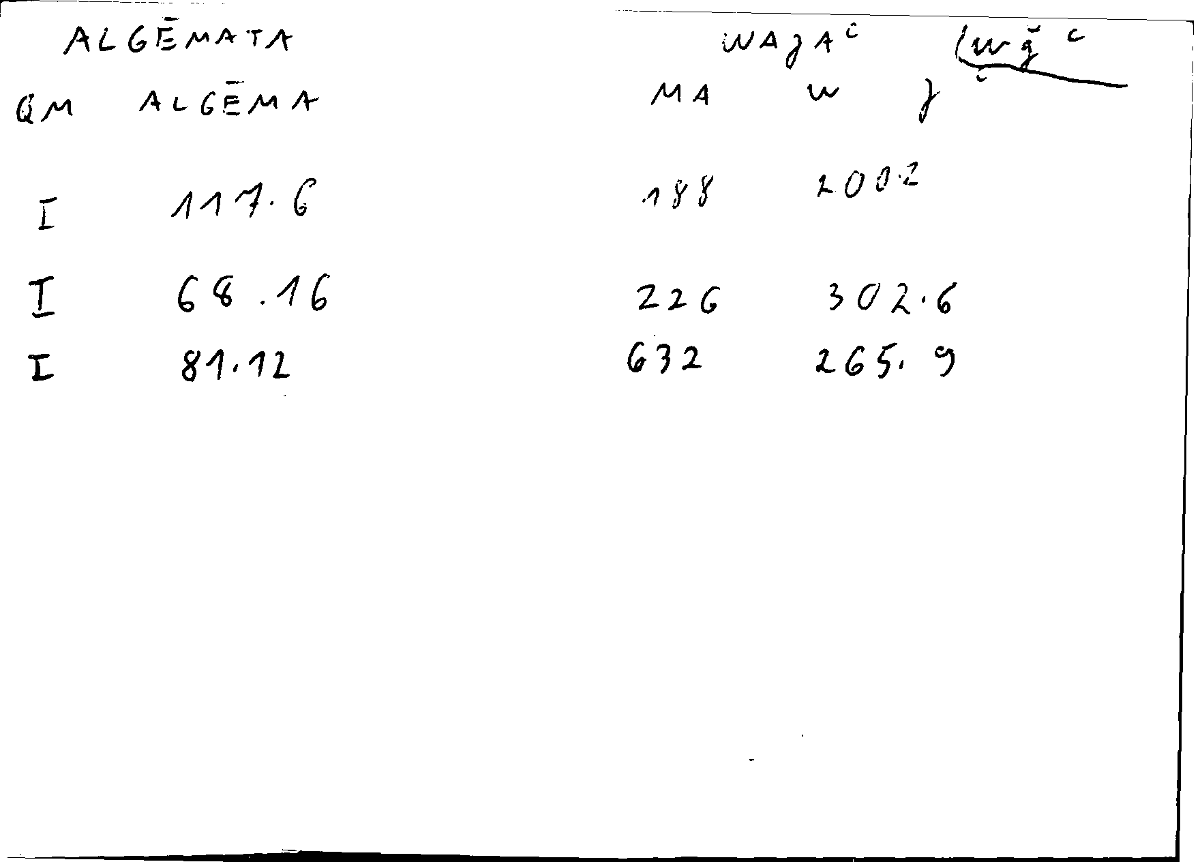 ALGĒMATA WAʒAᶜ
QM ALGĒMA MA W ʒ
I 117.6 188 200.2
I 68.16 226 302.6
I 81.12 632 265.9